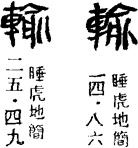 輸
睡虎地簡
一四·八六
輸
睡虎地簡
二五·四九